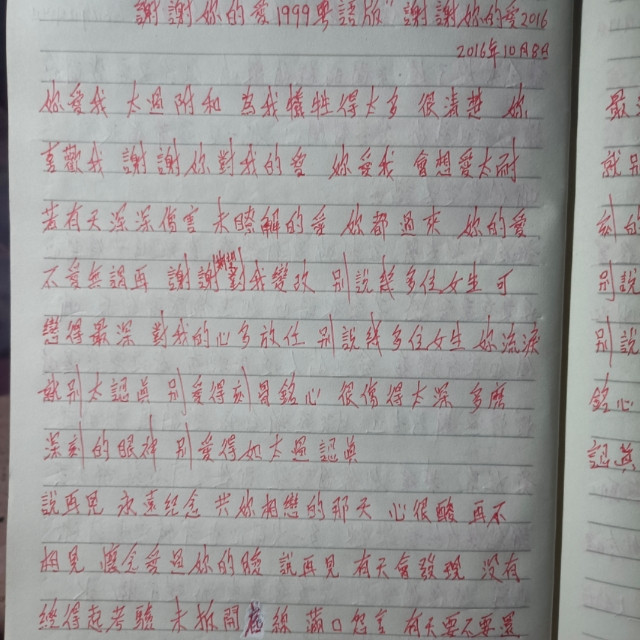 謝謝你的愛1999粵語版" 謝謝妳的愛2016
2016年10月8日
妳愛我 太過附和 為我犧牲得太多 很清楚 妳
喜歡我 謝謝妳對我的愛 妳愛我 會想愛太耐
若有天深深傷害 未瞭解的愛 妳都過來 妳的愛
不愛無謂再 謝謝 對我變改 別說幾多位女生 可
戀得最深 對我的心多放任 別說幾多位女生 妳流淚
就別太認真 別愛得刻骨銘心 很傷得太深 多麼
深刻的眼神 別愛得如太過認真
說再見 永遠紀念 共妳相戀的那天 心很酸 再不
相見 懷念愛過妳的臉 說再見 有天會發現 沒有
經得起考驗 未拆開 線 滿口怨言 有天要不要
最
就別
刻的
別說
別說
銘心
認真